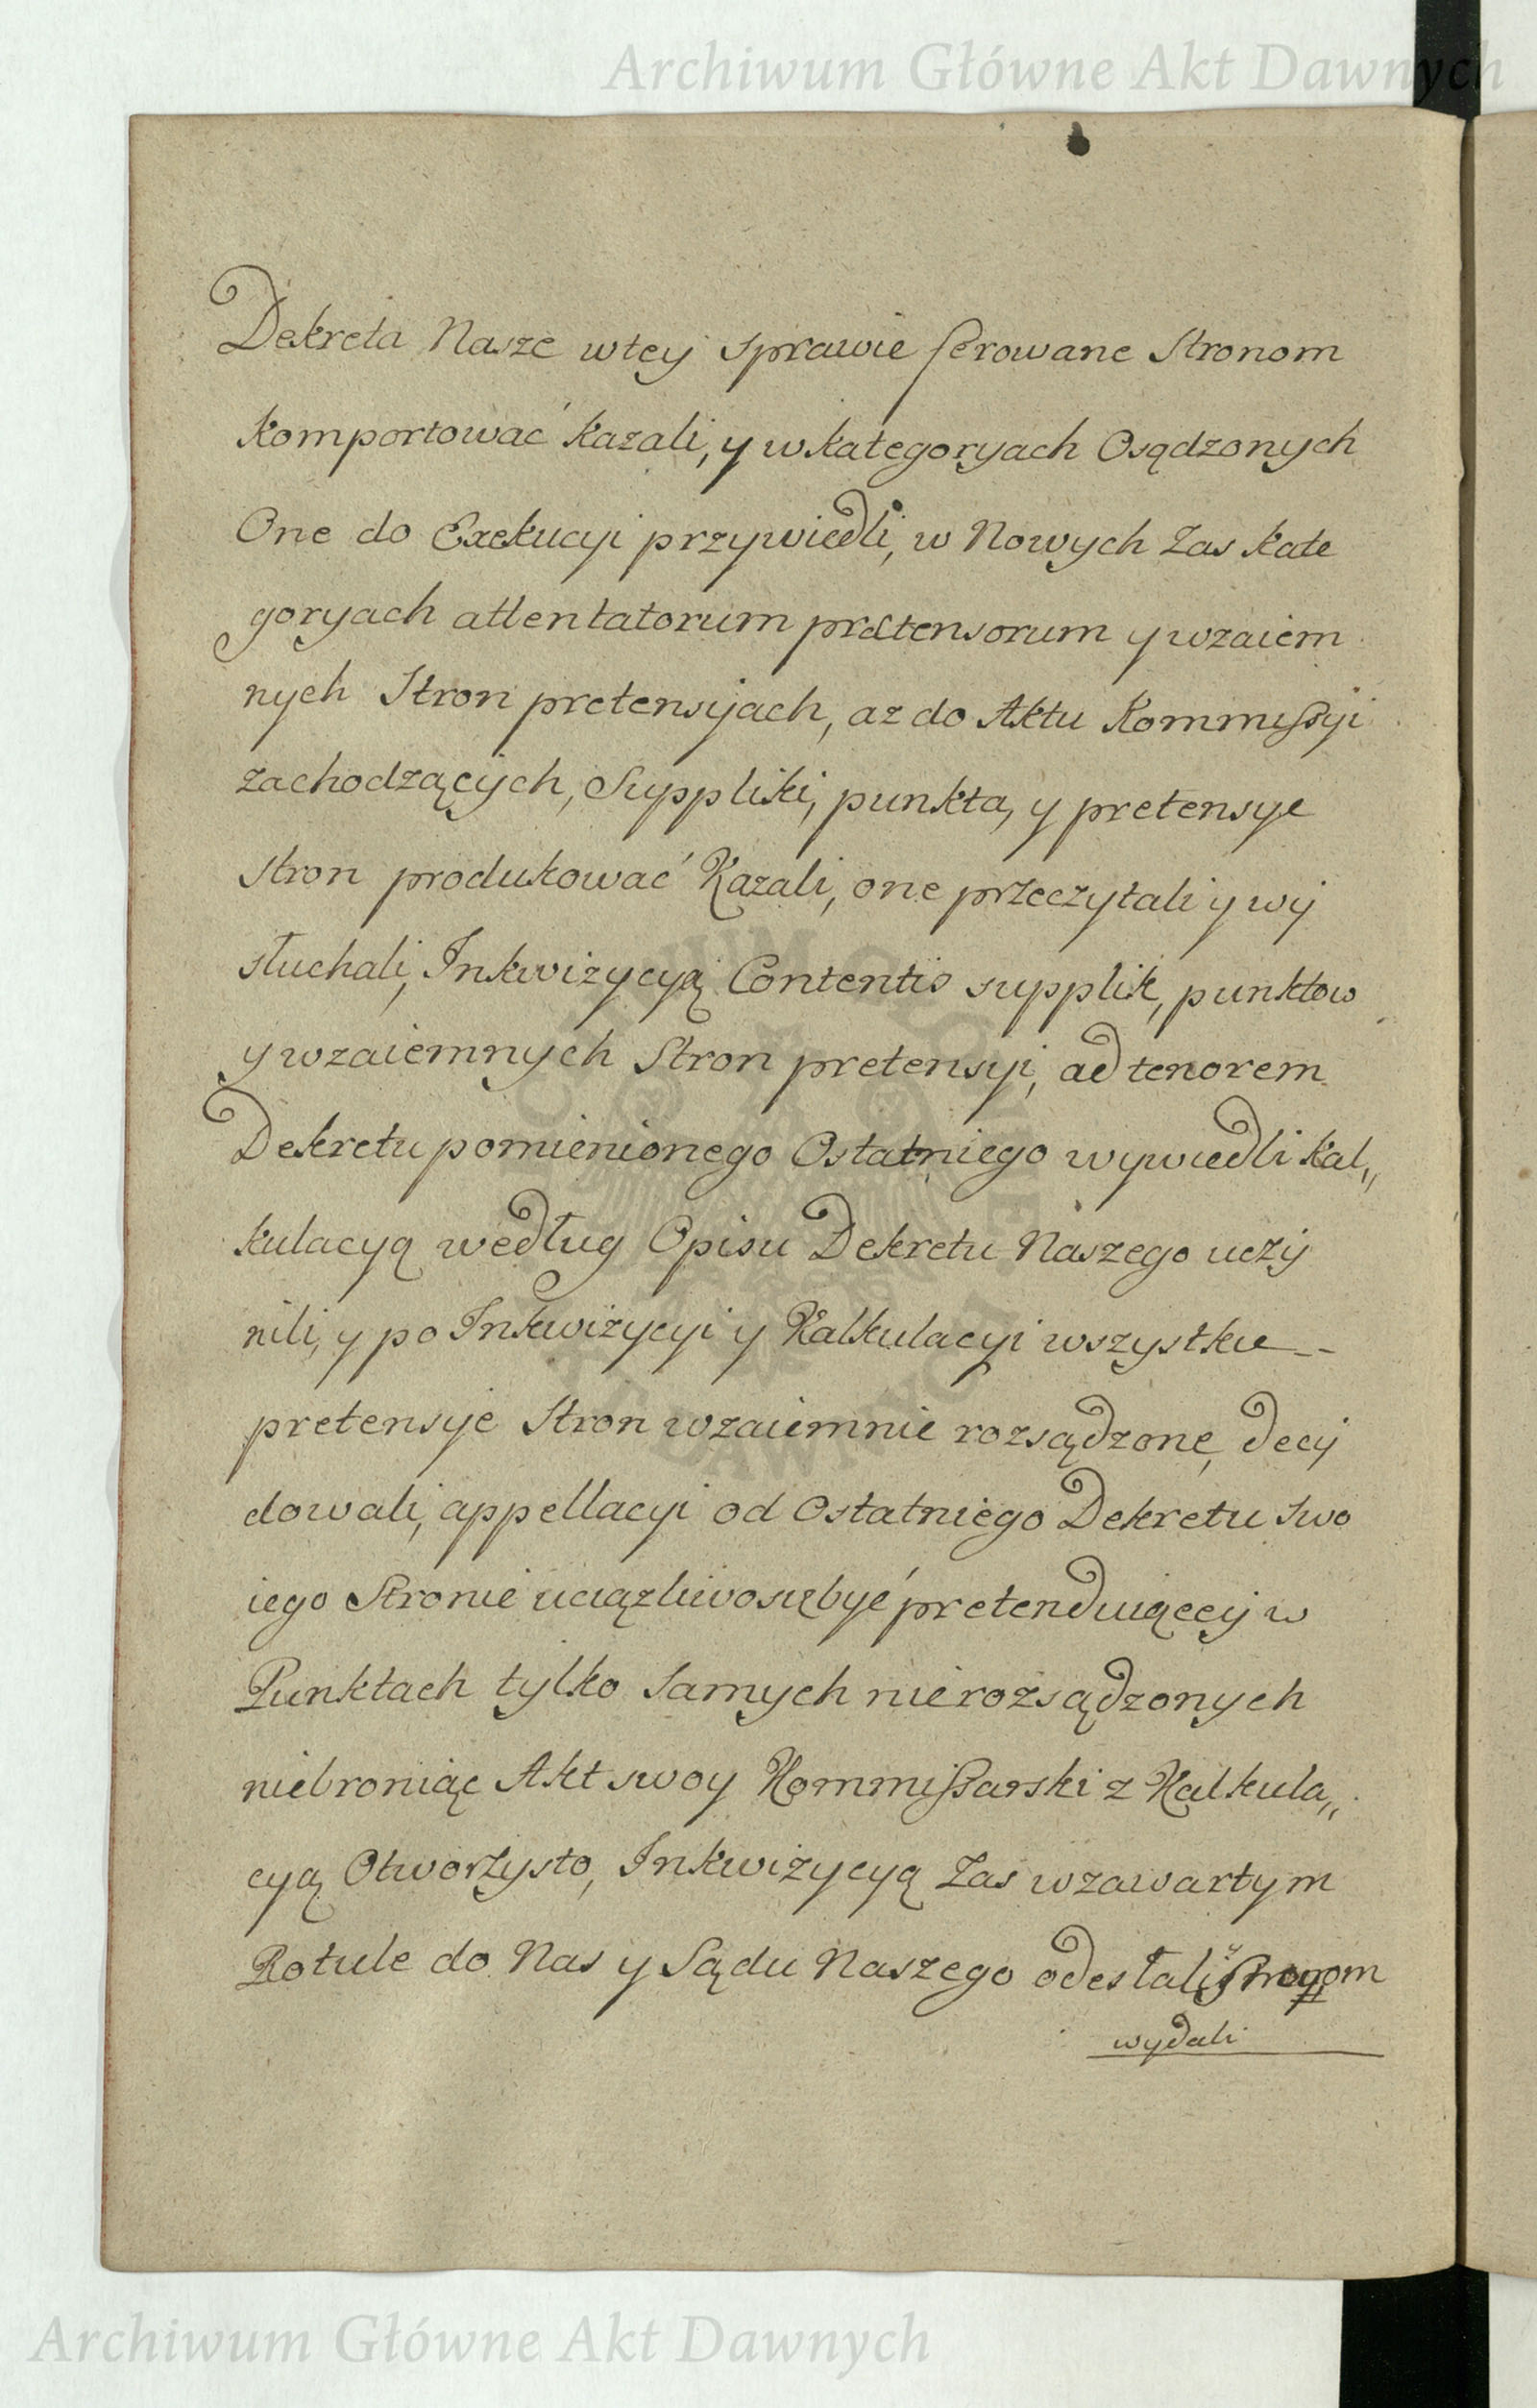 Archiwum Główne Akt Dawnych
Dekreta Nasze wtey sprawie ferowane Stronom
komportować kazali, y w kategoryach Osądzonych
One do Exekucyi przywiedli, w Nowych zas kate
goryach attentatorum prætensorum y wzaiem
nych Stron pretensyach, az do Aktu Kommissyi
zachodzących, Suppliki, punkta, y pretensye
stron produkować Kazali, one przeczytali y wy
słuchali, Inkwizycyą Contentis supplik, punktow
y wzaiemnych Stron pretensyi, ad tenorem
Dekretu pomienionego Ostatniego wywiedli kal„
kulacyą według Opisu Dekretu Naszego uczy
nili, y po Inkwizycyi y Kalkulacyi wszystkie --
pretensye Stron wzaiemnie rozsądzone, decy
dowali, appellacyi od Ostatniego Dekretu swo
iego Stronie uciązliwosię być pretenduiącey w
Punktach tylko samych nierozsądzonych
niebroniąc Akt swoy Kommissarski z Kalkula„
cyą Otworzysto, Inkwizycyą zas wzawartym
Rotule do Nas y Sądu Naszego odesłali y Stronom
wydali
Archiwum Główne Akt Dawnych